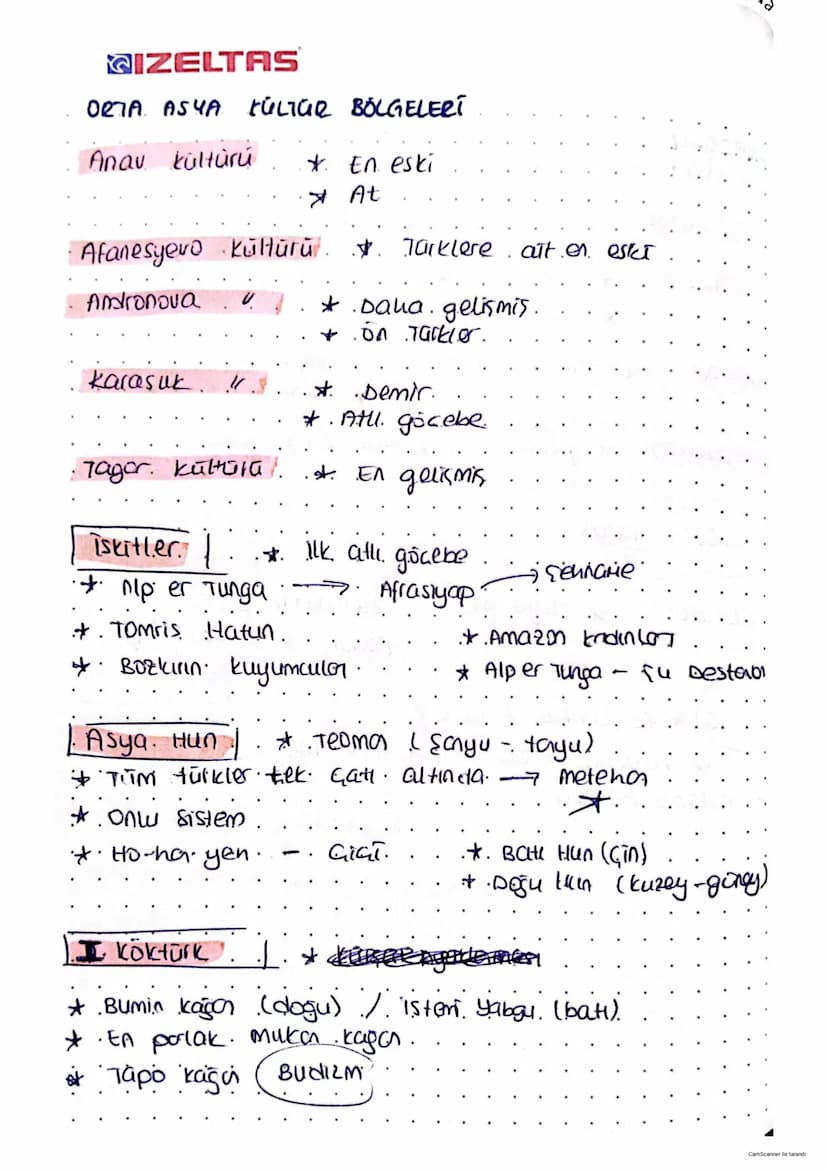 IZELTAS
ORTA ASYA KÜLTÜR BÖLGELERİ
Anav kültürü * En eski
* At
Afanesyevo kültürü * Türklere ait en eski
Andronova " * Daha gelişmiş
* Ön Türkler
Karasuk " * Demir
* Atlı göçebe
Tagar kültürü * En gelişmiş
İskitler * İlk atlı göçebe
* Alp er Tunga → Afrasiyap → Şehname
* Tomris Hatun * Amazon kadınları
* Bozkırın kuyumcuları * Alp er Tunga - Şu Destanı
Asya Hun * Teoman (Şanyu - tanyu)
* Tüm türkler tek çatı altında → metehan
*
* Onlu sistem
* Ho-han-yen - Çiçi * Batı Hun (Çin)
* Doğu Hun (kuzey-güney)
I. KÖKTÜRK *
* Bumin kağan (doğu) / istemi Yabgu (batı)
* En parlak mukan kağan
* Tapo kağan Budizm
CamScanner ile tarandı